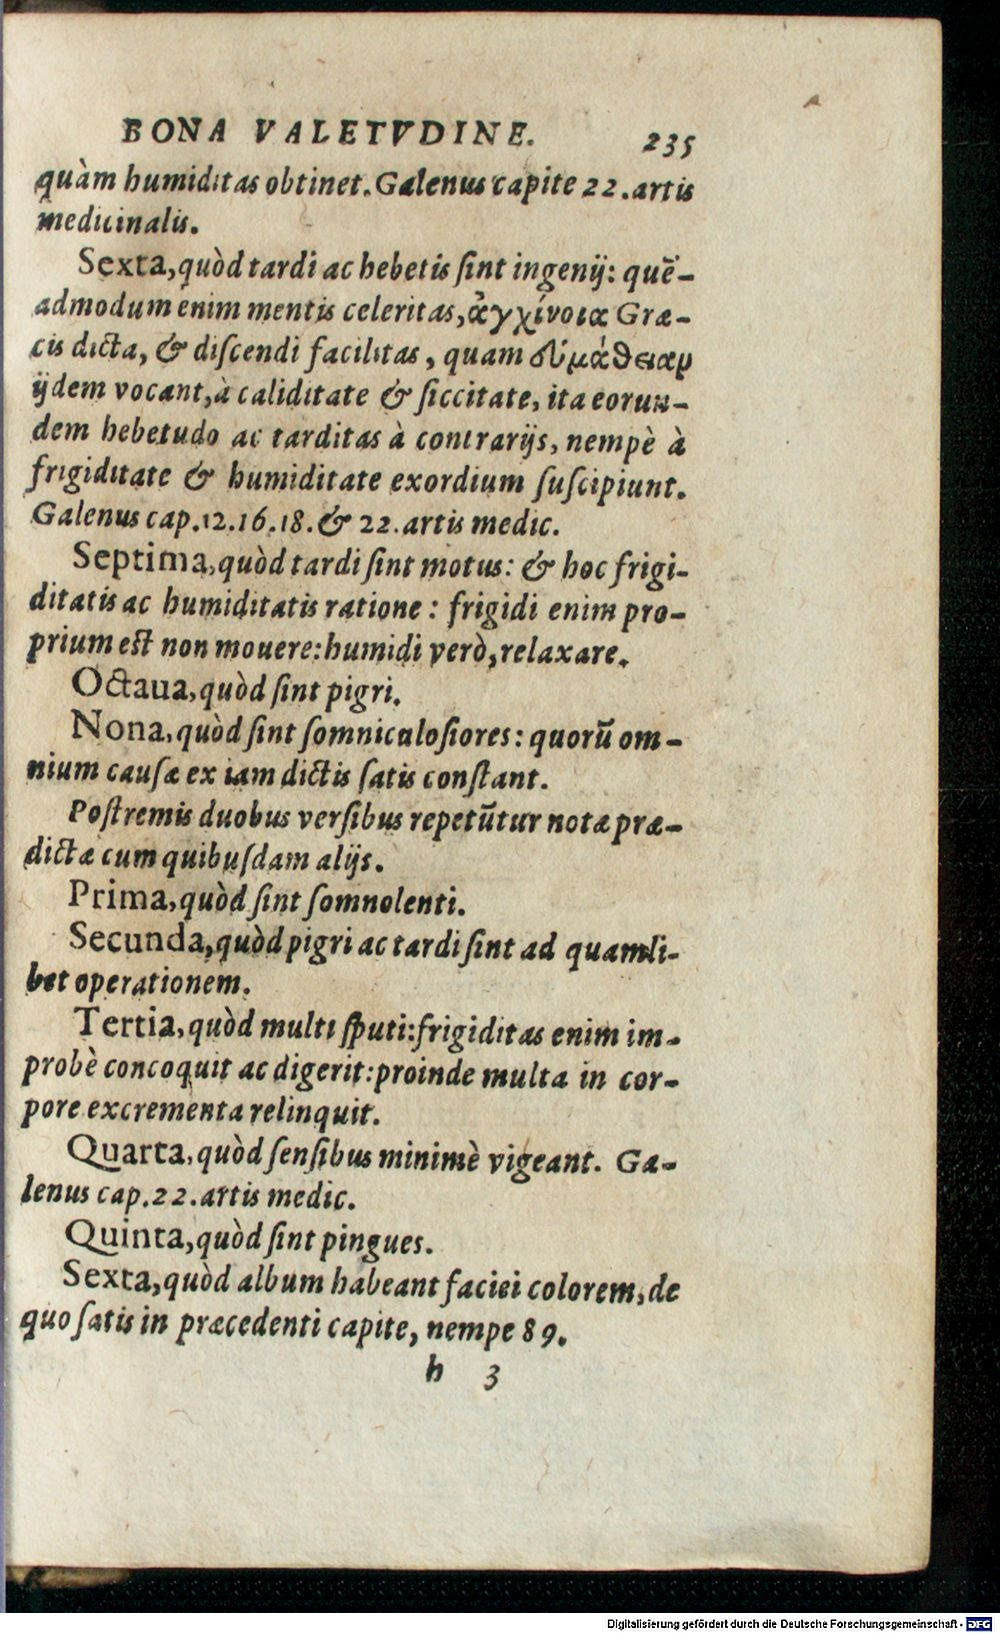 BONA VALETVDINE. 235
quàm humiditas obtinet. Galenus capite 22. artis
medicinalis.
Sexta, quòd tardi ac hebetis ſint ingenij: quē-
admodum enim mentis celeritas, ἀγχίνοια Græ-
cis dicta, & diſcendi facilitas, quam εὐμάθειαν
ijdem vocant, à caliditate & ſiccitate, ita eorun-
dem hebetudo ac tarditas à contrarijs, nempè à
frigiditate & humiditate exordium ſuſcipiunt.
Galenus cap. 12. 16. 18. & 22. artis medic.
Septima, quòd tardi ſint motus: & hoc frigi-
ditatis ac humiditatis ratione: frigidi enim pro-
prium est non mouere: humidi verò, relaxare.
Octaua, quòd ſint pigri.
Nona, quòd ſint ſomniculoſiores: quorū om-
nium cauſæ ex iam dictis ſatis conſtant.
Poſtremis duobus verſibus repetūtur notæ præ-
dictæ cum quibuſdam alijs.
Prima, quòd ſint ſomnolenti.
Secunda, quòd pigri ac tardi ſint ad quamli-
bet operationem.
Tertia, quòd multi ſputi: frigiditas enim im-
probè concoquit ac digerit: proinde multa in cor-
pore excrementa relinquit.
Quarta, quòd ſenſibus minimè vigeant. Ga-
lenus cap. 22. artis medic.
Quinta, quòd ſint pingues.
Sexta, quòd album habeant faciei colorem, de
quo ſatis in præcedenti capite, nempe 89.
h 3
Digitalisierung gefördert durch die Deutsche Forschungsgemeinschaft - DFG